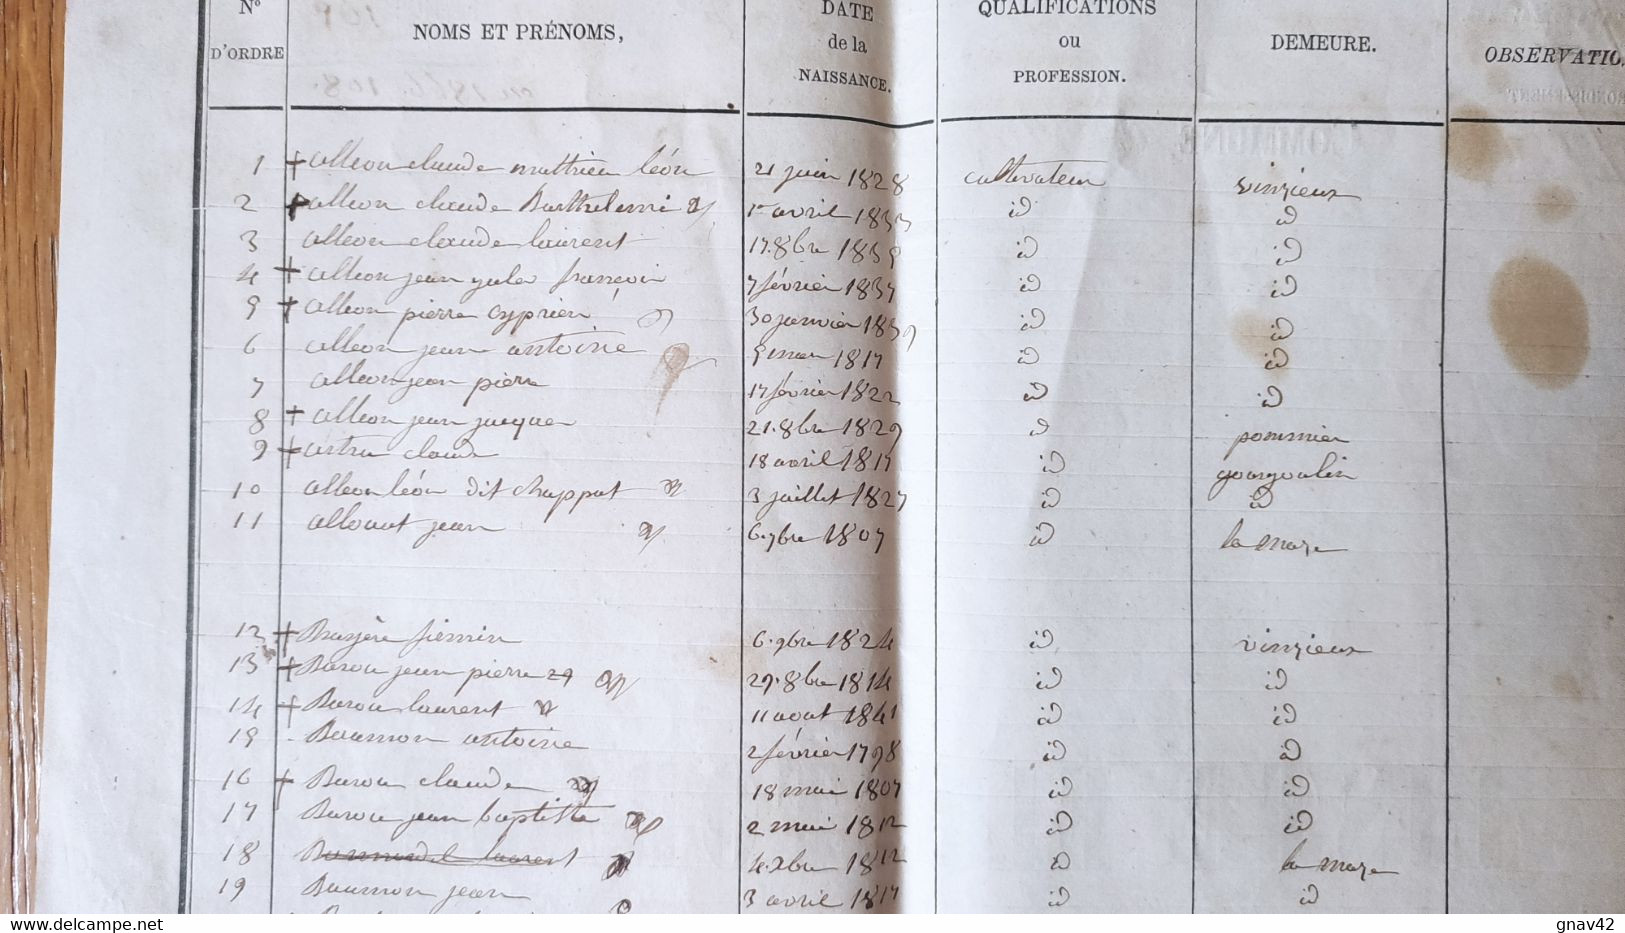 N° D'ORDRE NOMS ET PRÉNOMS, DATE de la NAISSANCE. QUALIFICATIONS ou PROFESSION. DEMEURE. OBSERVATIO
en 1866. 108.
COMMUNE d
1 + alleon claude matthieu léon 21 juin 1828 cultivateur vinzieux
2 + alleon claude Barthelemi 1er avril 1833 id id
3 alleon claude laurent 17. 8bre 1839 id id
4 + alleon jean jules françois 7 février 1837 id id
5 + alleon pierre cyprien 30 janvier 1839 id id
6 alleon jean antoine 9 mars 1817 id id
7 alleon jean pierre 17 février 1822 id id
8 + alleon jean jacques 21. 8bre 1829 id pommier
9 + astru claude 18 avril 1817 id gourgoulin
10 alleon léon dit chappat 3 juillet 1827 id id
11 allouat jean 6. 9bre 1807 id la maze
12 + Bruyère firmin 6. 9bre 1824 id vinzieux
13 + Barou jean pierre 29. 8bre 1814 id id
14 + Barou laurent 11 aout 1841 id id
15 Baumon antoine 2 février 1798 id id
16 + Barou claude 18 mai 1807 id id
17 Barou jean baptiste 2 mai 1812 id id
18 laurent 4. xbre 1812 id la maze
19 Baumon jean 3 avril 1817 id id
delcampe.net gnav42